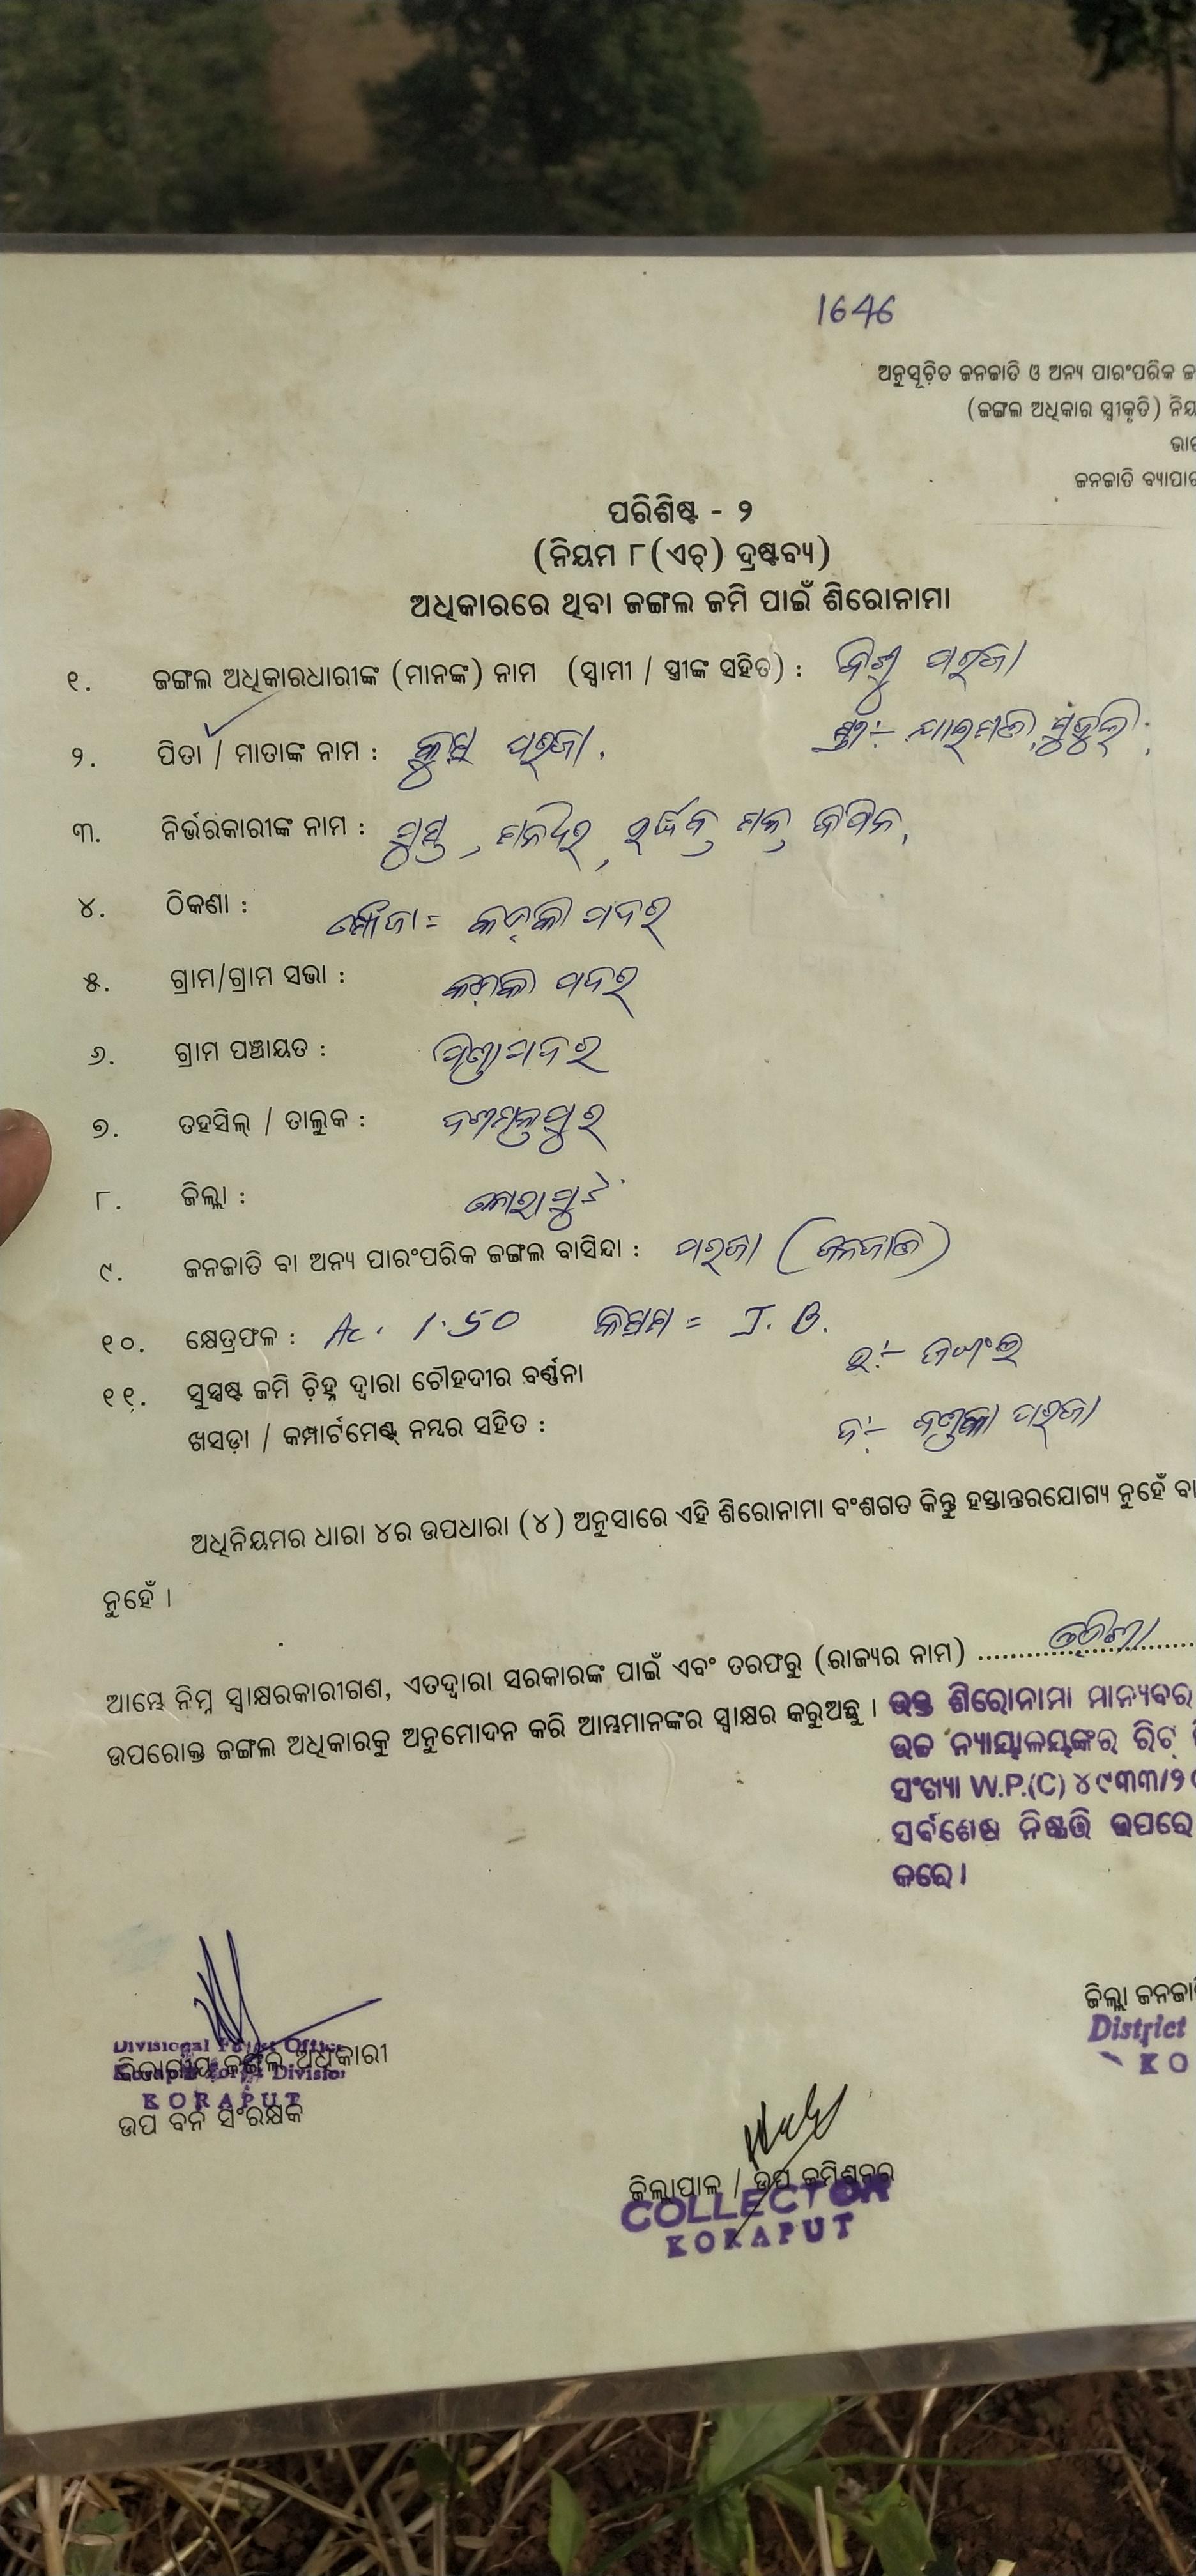 1646
ଅନୁସୂଚିତ ଜନଜାତି ଓ ଅନ୍ୟ ପାରଂପରିକ ଜ
(ଜଙ୍ଗଲ ଅଧିକାର ସ୍ୱୀକୃତି) ନିୟ
ଭାର
ଜନଜାତି ବ୍ୟାପାର
ପରିଶିଷ୍ଟ - ୨
(ନିୟମ ୮(ଏଚ୍) ଦ୍ରଷ୍ଟବ୍ୟ)
ଅଧିକାରରେ ଥିବା ଜଙ୍ଗଲ ଜମି ପାଇଁ ଶିରୋନାମା
୧. ଜଙ୍ଗଲ ଅଧିକାରଧାରୀଙ୍କ (ମାନଙ୍କ) ନାମ (ସ୍ୱାମୀ / ସ୍ତ୍ରୀଙ୍କ ସହିତ) : ପରଜା
୨. ପିତା / ମାତାଙ୍କ ନାମ : ପରଜା
୩. ନିର୍ଭରକାରୀଙ୍କ ନାମ :
୪. ଠିକଣା : ମୌଜା =
୫. ଗ୍ରାମ/ଗ୍ରାମ ସଭା :
୬. ଗ୍ରାମ ପଞ୍ଚାୟତ :
୭. ତହସିଲ୍ / ତାଲୁକ : ଦଶମନ୍ତପୁର
୮. ଜିଲ୍ଲା : କୋରାପୁଟ
୯. ଜନଜାତି ବା ଅନ୍ୟ ପାରଂପରିକ ଜଙ୍ଗଲ ବାସିନ୍ଦା : ପରଜା (ଜନଜାତି)
୧୦. କ୍ଷେତ୍ରଫଳ : Ac. 1.50 କିସମ = J. B.
୧୧. ସୁସ୍ପଷ୍ଟ ଜମି ଚିହ୍ନ ଦ୍ୱାରା ଚୌହଦୀର ବର୍ଣ୍ଣନା
ଖସଡ଼ା / କମ୍ପାର୍ଟମେଣ୍ଟ ନମ୍ବର ସହିତ : ପରଜା
ଅଧିନିୟମର ଧାରା ୪ର ଉପଧାରା (୪) ଅନୁସାରେ ଏହି ଶିରୋନାମା ବଂଶଗତ କିନ୍ତୁ ହସ୍ତାନ୍ତରଯୋଗ୍ୟ ନୁହେଁ ବା
ନୁହେଁ ।
ଆମ୍ଭେ ନିମ୍ନ ସ୍ୱାକ୍ଷରକାରୀଗଣ, ଏତଦ୍ୱାରା ସରକାରଙ୍କ ପାଇଁ ଏବଂ ତରଫରୁ (ରାଜ୍ୟର ନାମ) ........ ଓଡିଶା
ଉପରୋକ୍ତ ଜଙ୍ଗଲ ଅଧିକାରକୁ ଅନୁମୋଦନ କରି ଆମ୍ଭମାନଙ୍କର ସ୍ୱାକ୍ଷର କରୁଅଛୁ ।
ଉକ୍ତ ଶିରୋନାମା ମାନ୍ୟବର
ଉଚ୍ଚ ନ୍ୟାୟାଳୟଙ୍କର ରିଟ୍
ସଂଖ୍ୟା W.P.(C) ୪୯୩୩/୨୦
ସର୍ବଶେଷ ନିଷ୍ପତ୍ତି ଉପରେ
କରେ।
ଜିଲ୍ଲା ଜନଜା
District
KO
Divisional Forest Officer
Koraput Forest Division
KORAPUT
ବିଭାଗୀୟ ଜଙ୍ଗଲ ଅଧିକାରୀ
ଉପ ବନ ସଂରକ୍ଷକ
ଜିଲ୍ଲାପାଳ / ଉପ କମିଶନର
COLLECTOR
KORAPUT